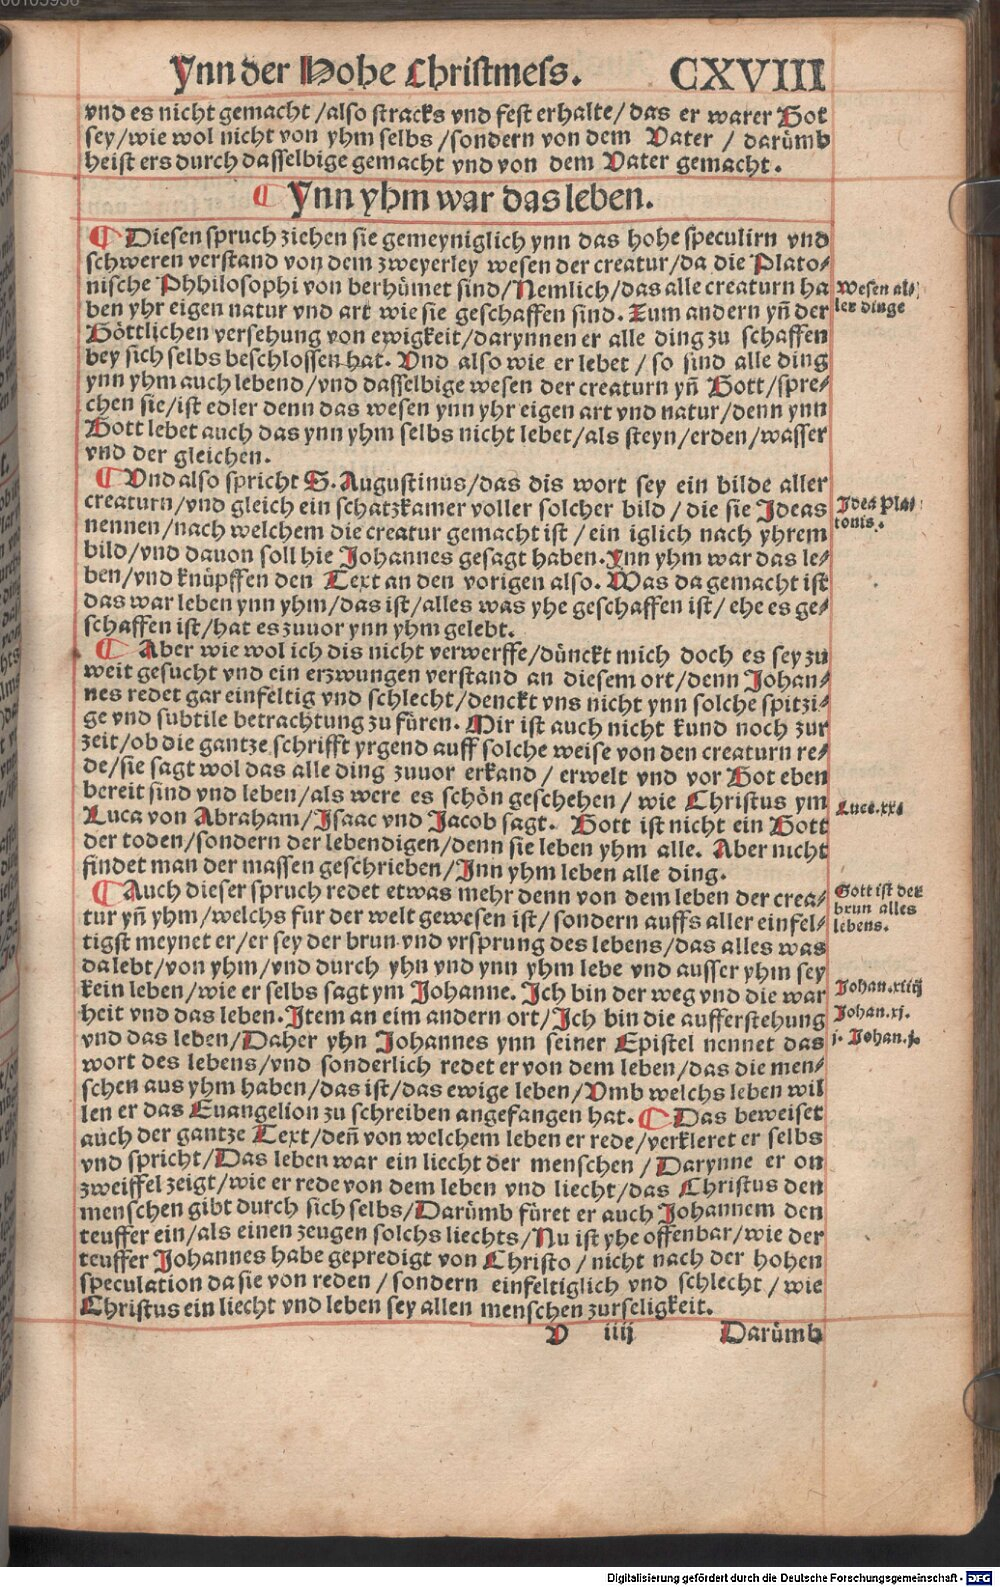 Ynn der Hohe Christmess. CXVIII
vnd es nicht gemacht/also stracks vnd fest erhalte/das er warer Got
sey/wie wol nicht von yhm selbs/sondern von dem Vater/darůmb
heist ers durch dasselbige gemacht vnd von dem Vater gemacht.
¶ Ynn yhm war das leben.
¶ Diesen spruch ziehen sie gemeyniglich ynn das hohe speculirn vnd
schweren verstand von dem zweyerley wesen der creatur/da die Plato/
nische Phhilosophi von berhůmet sind/Nemlich/das alle creaturn ha
ben yhr eigen natur vnd art wie sie geschaffen sind. Zum andern yn̄ der
Göttlichen versehung von ewigkeit/darynnen er alle ding zu schaffen
bey sich selbs beschlossen hat. Vnd also wie er lebet/so sind alle ding
ynn yhm auch lebend/vnd dasselbige wesen der creaturn yn̄ Gott/spre/
chen sie/ist edler denn das wesen ynn yhr eigen art vnd natur/denn ynn
Gott lebet auch das ynn yhm selbs nicht lebet/als steyn/erden/wasser
vnd der gleichen.
Wesen al/
ler dinge
¶ Vnd also spricht S. Augustinus/das dis wort sey ein bilde aller
creaturn/vnd gleich ein schatzkamer voller solcher bild/die sie Ideas
nennen/nach welchem die creatur gemacht ist/ein iglich nach yhrem
bild/vnd dauon soll hie Johannes gesagt haben. Ynn yhm war das le/
ben/vnd knůpffen den Text an den vorigen also. Was da gemacht ist
das war leben ynn yhm/das ist/alles was yhe geschaffen ist/ehe es ge/
schaffen ist/hat es zuuor ynn yhm gelebt.
Idea Pla/
tonis.
¶ Aber wie wol ich dis nicht verwerffe/důnckt mich doch es sey zu
weit gesucht vnd ein erzwungen verstand an diesem ort/denn Johan/
nes redet gar einfeltig vnd schlecht/denckt vns nicht ynn solche spitzi/
ge vnd subtile betrachtung zu fůren. Mir ist auch nicht kund noch zur
zeit/ob die gantze schrifft yrgend auff solche weise von den creaturn re/
de/sie sagt wol das alle ding zuuor erkand/erwelt vnd vor Got eben
bereit sind vnd leben/als were es schön geschehen/wie Christus ym
Luca von Abraham/Isaac vnd Jacob sagt. Gott ist nicht ein Gott
der toden/sondern der lebendigen/denn sie leben yhm alle. Aber nicht
findet man der massen geschrieben/Inn yhm leben alle ding.
Luce.xx.
¶ Auch dieser spruch redet etwas mehr denn von dem leben der crea/
tur yn̄ yhm/welchs fur der welt gewesen ist/sondern auffs aller einfel/
tigst meynet er/er sey der brun vnd vrsprung des lebens/das alles was
da lebt/von yhm/vnd durch yhn vnd ynn yhm lebe vnd ausser yhm sey
kein leben/wie er selbs sagt ym Johanne. Ich bin der weg vnd die war
heit vnd das leben. Item an eim andern ort/Ich bin die aufferstehung
vnd das leben/Daher yhn Johannes ynn seiner Epistel nennet das
wort des lebens/vnd sonderlich redet er von dem leben/das die men/
schen aus yhm haben/das ist/das ewige leben/Vmb welchs leben wil
len er das Euangelion zu schreiben angefangen hat. ¶ Das beweiset
auch der gantze Text/den̄ von welchem leben er rede/verkleret er selbs
vnd spricht/Das leben war ein liecht der menschen/Darynne er on
zweiffel zeigt/wie er rede von dem leben vnd liecht/das Christus den
menschen gibt durch sich selbs/Darůmb fůret er auch Johannem den
teuffer ein/als einen zeugen solchs liechts/Nu ist yhe offenbar/wie der
teuffer Johannes habe gepredigt von Christo/nicht nach der hohen
speculation da sie von reden/sondern einfeltiglich vnd schlecht/wie
Christus ein liecht vnd leben sey allen menschen zur seligkeit.
Gott ist der
brun alles
lebens.
Johan.xiiij
Johan.xj.
j. Johan.j.
V iiij Darůmb
Digitalisierung gefördert durch die Deutsche Forschungsgemeinschaft - DFG